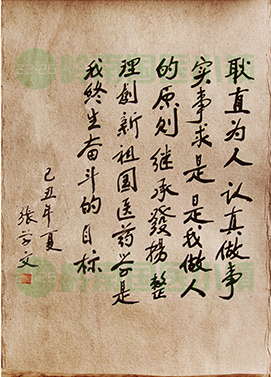 耿直为人 认真做事
实事求是 是我做人
的原则 继承發揚 整
理創新 祖国医药学是
我终生奋斗的目标
己丑年夏
张学文